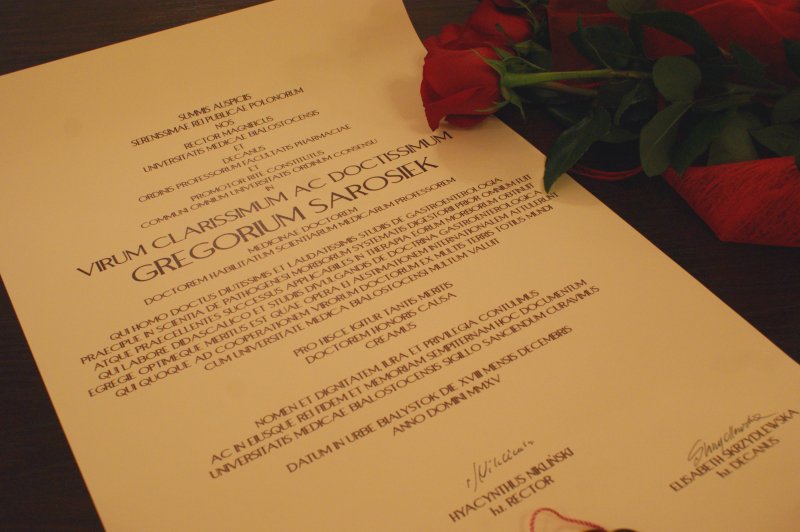 SUMMIS AUSPICIIS
SERENISSIMAE REI PUBLICAE POLONORUM
NOS
RECTOR MAGNIFICUS
UNIVERSITATIS MEDICAE BIALOSTOCENSIS
ET
DECANUS
ORDINIS PROFESSORUM FACULTATIS PHARMACIAE
ET
PROMOTOR RITE CONSTITUTUS
COMMUNI OMNIUM UNIVERSITATIS ORDINUM CONSENSU
IN
VIRUM CLARISSIMUM AC DOCTISSIMUM
GREGORIUM SAROSIEK
MEDICINAE DOCTOREM
DOCTOREM HABILITATUM SCIENTIARUM MEDICARUM PROFESSOREM
QUI HOMO DOCTUS DIUTISSIMIS ET LAUDATISSIMIS STUDIIS DE GASTROENTEROLOGIA
PRAECIPUE IN SCIENTIA DE PATHOGENESI MORBORUM SYSTEMATIS DIGESTORII PRIOR OMNIUM FUIT
ATQUE PRAECELLENTES SUCCESSUS APPLICABILES IN THERAPIA EORUM MORBORUM OBTINUIT
QUI LABORE DIDASCALICO ET STUDIIS DIVULGANDIS DE DOCTRINA GASTROENTEROLOGICA
EGREGIE OPTIMEQUE MERITUS EST QUAE OPERA EI AESTIMATIONEM INTERNATIONALEM ATTULERUNT
QUI QUOQUE AD COOPERATIONEM VIRORUM DOCTORUM EX MULTIS TERRIS TOTIUS MUNDI
CUM UNIVERSITATE MEDICA BIALOSTOCENSI MULTUM VALUIT
PRO HISCE IGITUR TANTIS MERITIS
DOCTOREM HONORIS CAUSA
CREAMUS
NOMEN ET DIGNITATEM, IURA ET PRIVILEGIA CONTULIMUS
AC IN EIUSQUE REI FIDEM ET MEMORIAM SEMPITERNAM HOC DOCUMENTUM
UNIVERSITATIS MEDICAE BIALOSTOCENSIS SIGILLO SANCIENDUM CURAVIMUS
DATUM IN URBE BIALYSTOK DIE XVIII MENSIS DECEMBRIS
ANNO DOMINI MMXV
HYACYNTHUS NIKLIŃSKI
h.t. RECTOR
ELISABETH SKRZYDLEWSKA
h.t. DECANUS